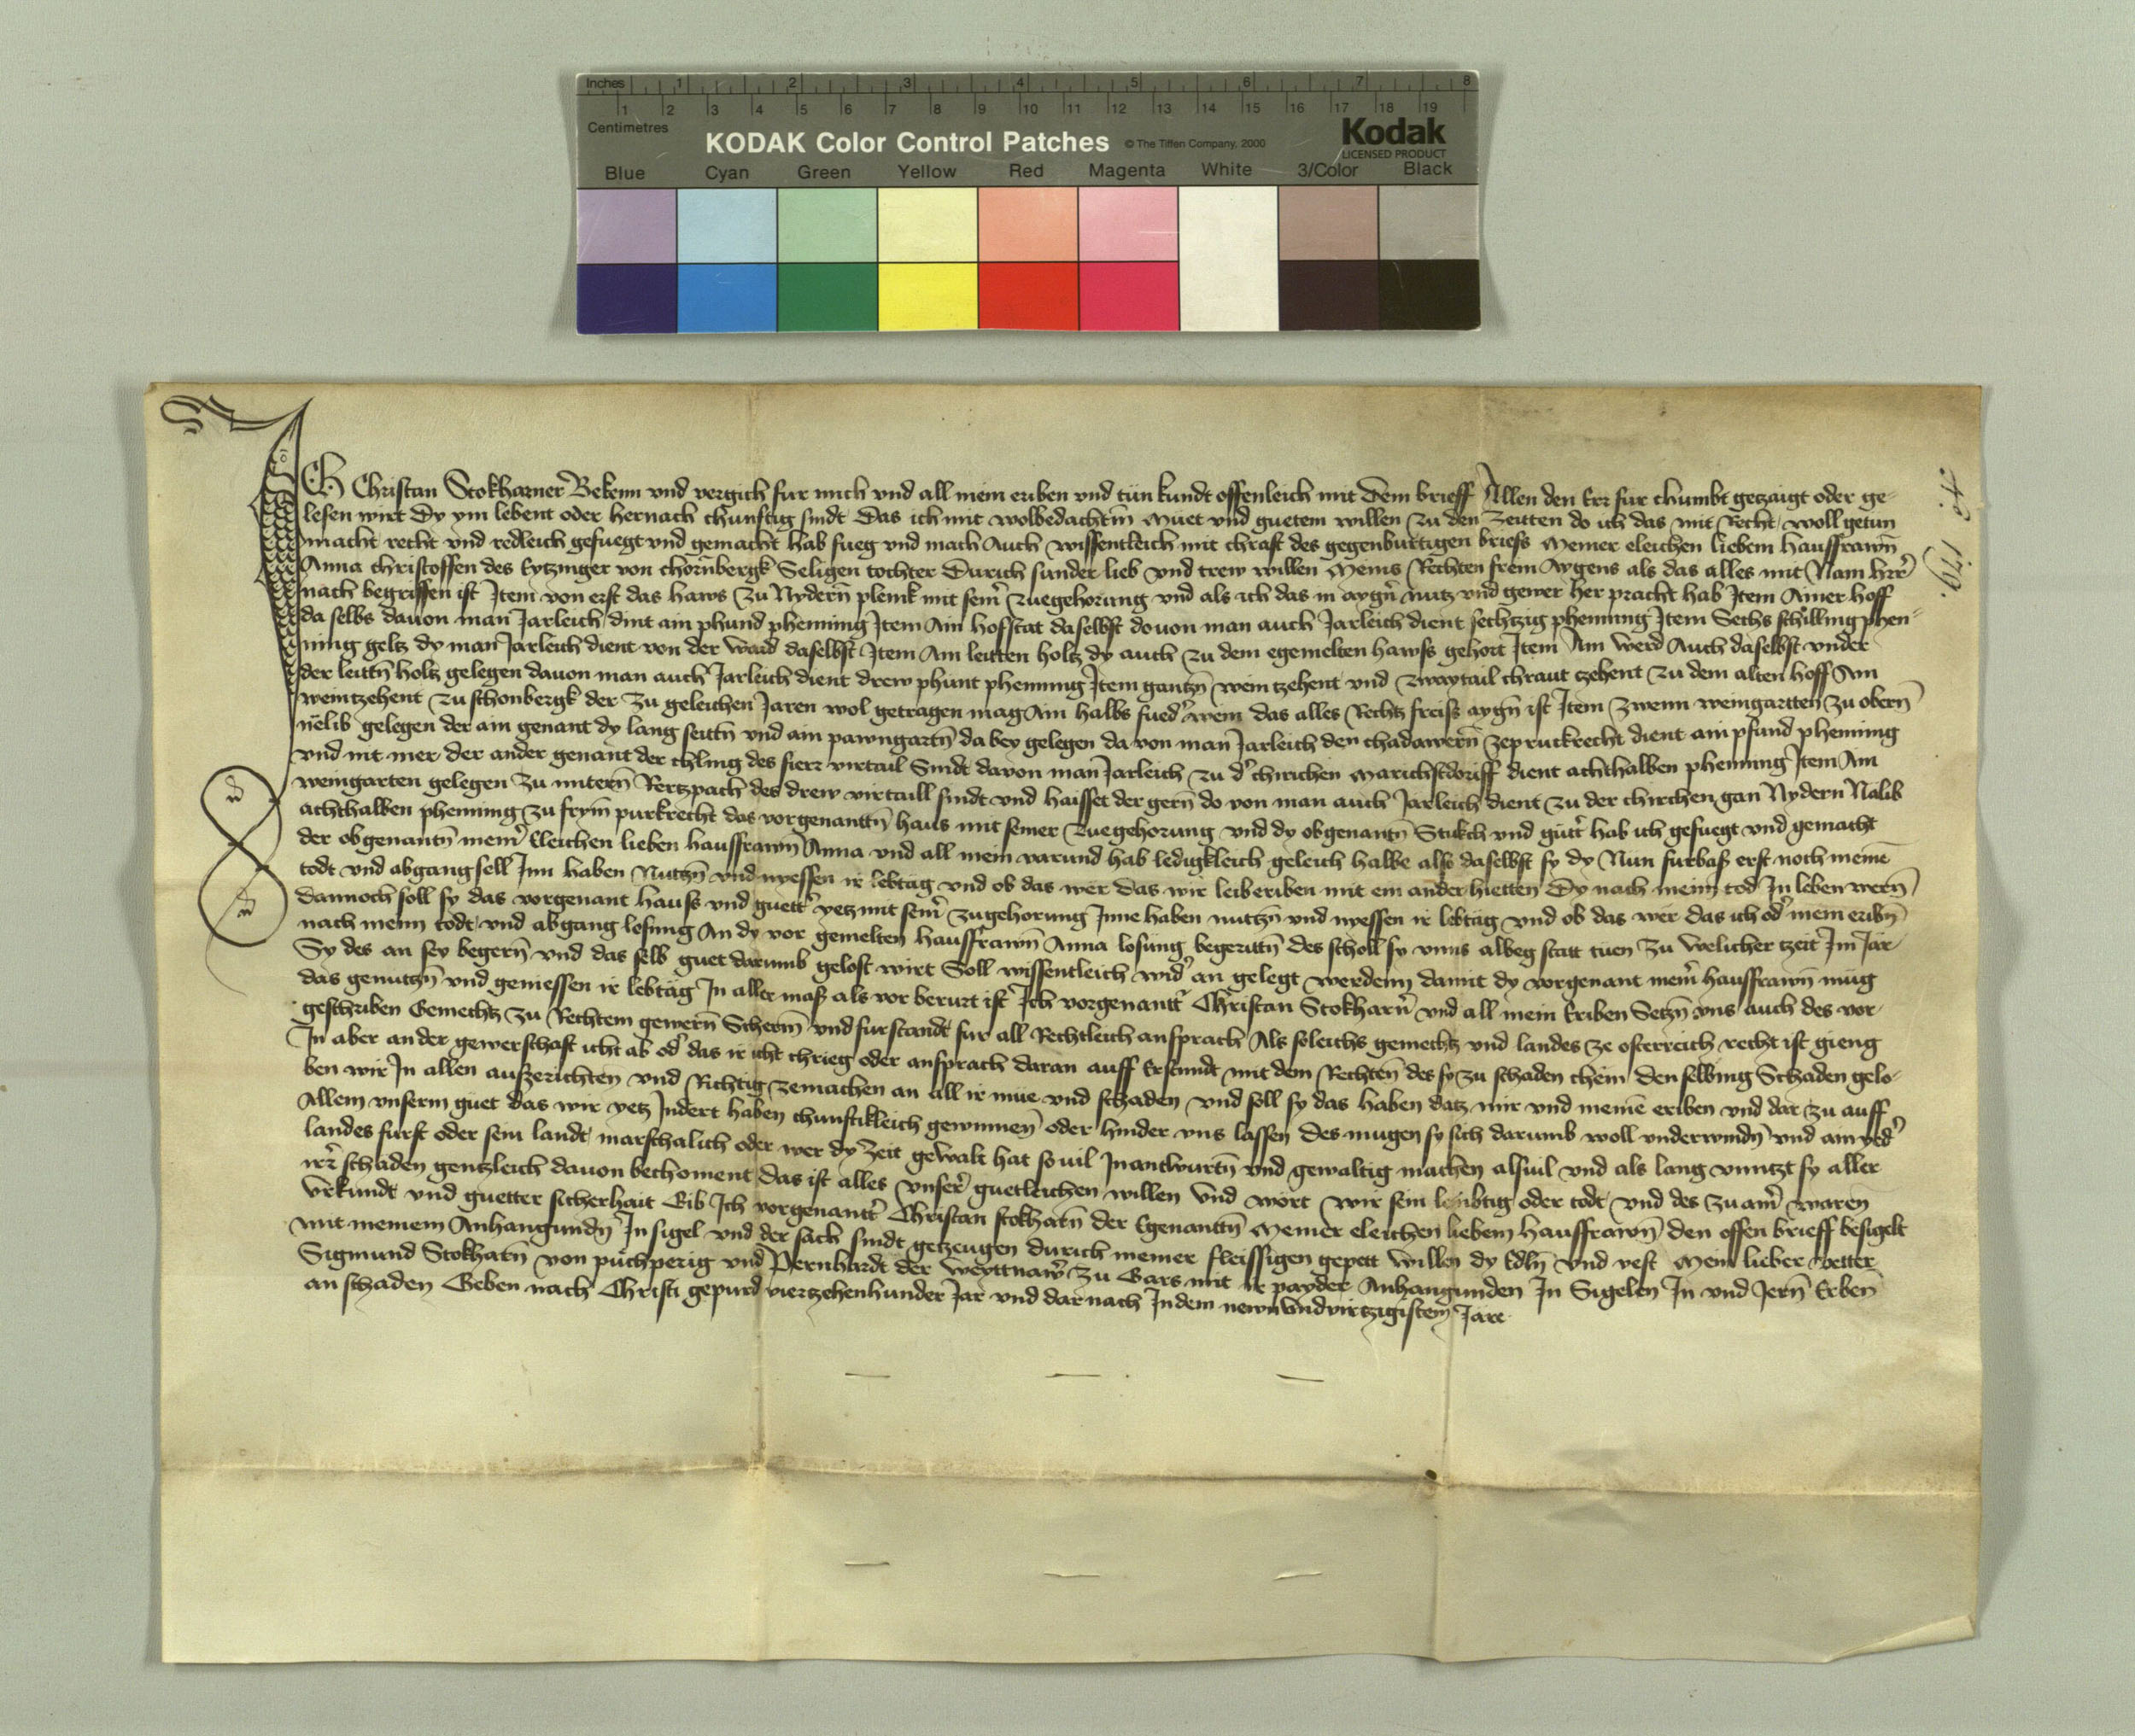 Inches 1 2 3 4 5 6 7 8
1 2 3 4 5 6 7 8 9 10 11 12 13 14 15 16 17 18 19
Centimetres
KODAK Color Control Patches © The Tiffen Company, 2000 Kodak
LICENSED PRODUCT
Blue Cyan Green Yellow Red Magenta White 3/Color Black
Ich Christan Stokharner Bekenn vnd vergich fur mich vnd all mein eriben vnd tun kundt offenleich mit dem brieff Allen den Err fur chumbt getzaigt oder ge-
lesen wirt Dy ym lebent oder hernach chunftig sindt Das ich mit wolbedachtm muet vnd guetem willen Zu den Zeitten do ich das mit Recht woll getun
macht recht vnd redleich gefuegt vnd gemacht hab fueg vnd mach Auch wissentleich mit chraft des gegenburtigen briefs Meiner eleichen liebem hauffrawn
Anna christoffen des Eytzinger von chornbergk Seligen tochter Durich sunder lieb vnd trew willen Meins Rechten frein Aygens als das alles mit Nam
nach begriffen ist Item von erst das haws Zu Nydern plenk mit seinr Zuegehorung vnd als ich das in aygn nutz vnd gewer her pracht hab Item Ainer hoff
da selbs dauon man Jarleich dint ain phund phenning Item Ain hofstat daselbst douon man auch Jarleich dient sechtzig phenning Item Sechs schilling phen-
ning geltz dy man Jarleich dient von der waid daselbst Item Am leitten holtz dy auch zu dem egemelten hawss gehort Item Am werd Auch daselbst vnder
der leittn holtz gelegen dauon man auch Jarleich dient drew phunt phenning Item gantzn wein tzehent vnd zwaytail chraut tzehent Zu dem alten hoff Am
weintzehent Zu schonbergk der Zu geleichen Jaren wol getragen mag Ain halbs fued wein das alles Rechtz freiss aygn ist Item Zwenn weingartten Zu obern
nelib gelegen der ain genant dy lang seittn vnd ain pawngartn da bey gelegen da von man Jarleich den chadawern ze purckrecht dient ain pfund phening
vnd nit mer der ander genant der chling des fierr virtail Sindt dauon man Jarleich Zu d chirichen Marichstdorff dient achthalben phenning Item Am
weingarten gelegen Zu nitern Retzpach des drew virtaill sindt vnd haisset der gern do von man auch Jarleich dient Zu der chirchen gan Nydern Nalib
achthalben phenning Zu frym purkrecht das vorgenanttn haus mit seiner Zuegehorung vnd dy obgenantn Stukch vnd gutt hab ich gefuegt vnd gemacht
der obgenantn meinr Eleichen lieben hauffrawn Anna vnd all mein varund hab ledigkleich geleich halbe als daselbst sy dy Nun furbas erst noch meine
todt vnd abgang sell Inn haben Nutzn vnd nyessen ir lebtag vnd ob das wer das wir leiberiben mit ein ander hietten Dy nach meim tod In leben wern
dannoch soll sy das vorgenant hauss vnd guett yetz mit seinr zugehorung Inne haben nutzn vnd nyessen ir lebtag vnd ob das wer das ich od mein eribn
nach meim todt vnd abgang losung An dy vor gemelten hauffrawn Anna losung begerttn des scholl sy vnns albeg statt tuen Zu welicher tzeit Im Jar
Sy des an sey begern vnd das selb guet darumb gelost wirt Soll wissentleich wid an gelegt werdenn damit dy vorgenant meinr hauffrawn mug
das genutzn vnd geniessen ir lebtag In aller mass als vor berurt ist Ich vorgenantt Christan Stokharnr vnd all mein Eriben Setzn vns auch des vor-
geschriben Gemechtz Zu Rechtem gewern Scherm vnd furstandt fur all Rechtleich ansprach Als soleichs gemechtz vnd landes ze osterreich recht ist gieng
In aber an der gewerschaft icht ab od das ir icht chrieg oder ansprach daran auff Erstundt mit dem Rechten des sy Zu schaden chem den selbing Schaden gelo-
ben wir In allen auszerichten vnd Richtig zemachen an all ir mue vnd schaden vnd soll sy das haben datz mir vnd meine eriben vnd dar Zu auff
Allem vnserm guet das wir yetz Indert haben chunftikleich gewinnen oder hinder vns lassen Des mugen sy sich darumb woll vnderwindn vnd ain yed
landes furst oder sein landt marschalich oder wer dy Zeit gewalt hat so uil In antwurtn vnd gewaltig machen alsuil vnd als lang vnntzt sy aller
irr schaden gentzleich dauon bechoment Das ist alles vnser guetleichen willen vnd wort wir sein lembtig oder todt vnd des Zu ainr waren
vrkundt vnd guetter sicherhait Gib Ich vorgenantt Christan stokharn der Egenanttn Meiner eleichen liebem hauffrawn den offen brieff besigelt
mit meinem Anhangundn In sigel vnd der sach sindt getzeugen durich meiner fleissigen gepett willen dy Edln vnd vest Mein lieber vetter
Sigmund Stokharn von puchperig vnd Pernhardt der weyttnawr Zu Gars mit ir payder Anhangunden In Sigelen In vnd Jern Erben
an schaden Geben nach Christi gepurd viertzehenhunder Jar vnd dar nach In dem newnundvirtzigistem Jare